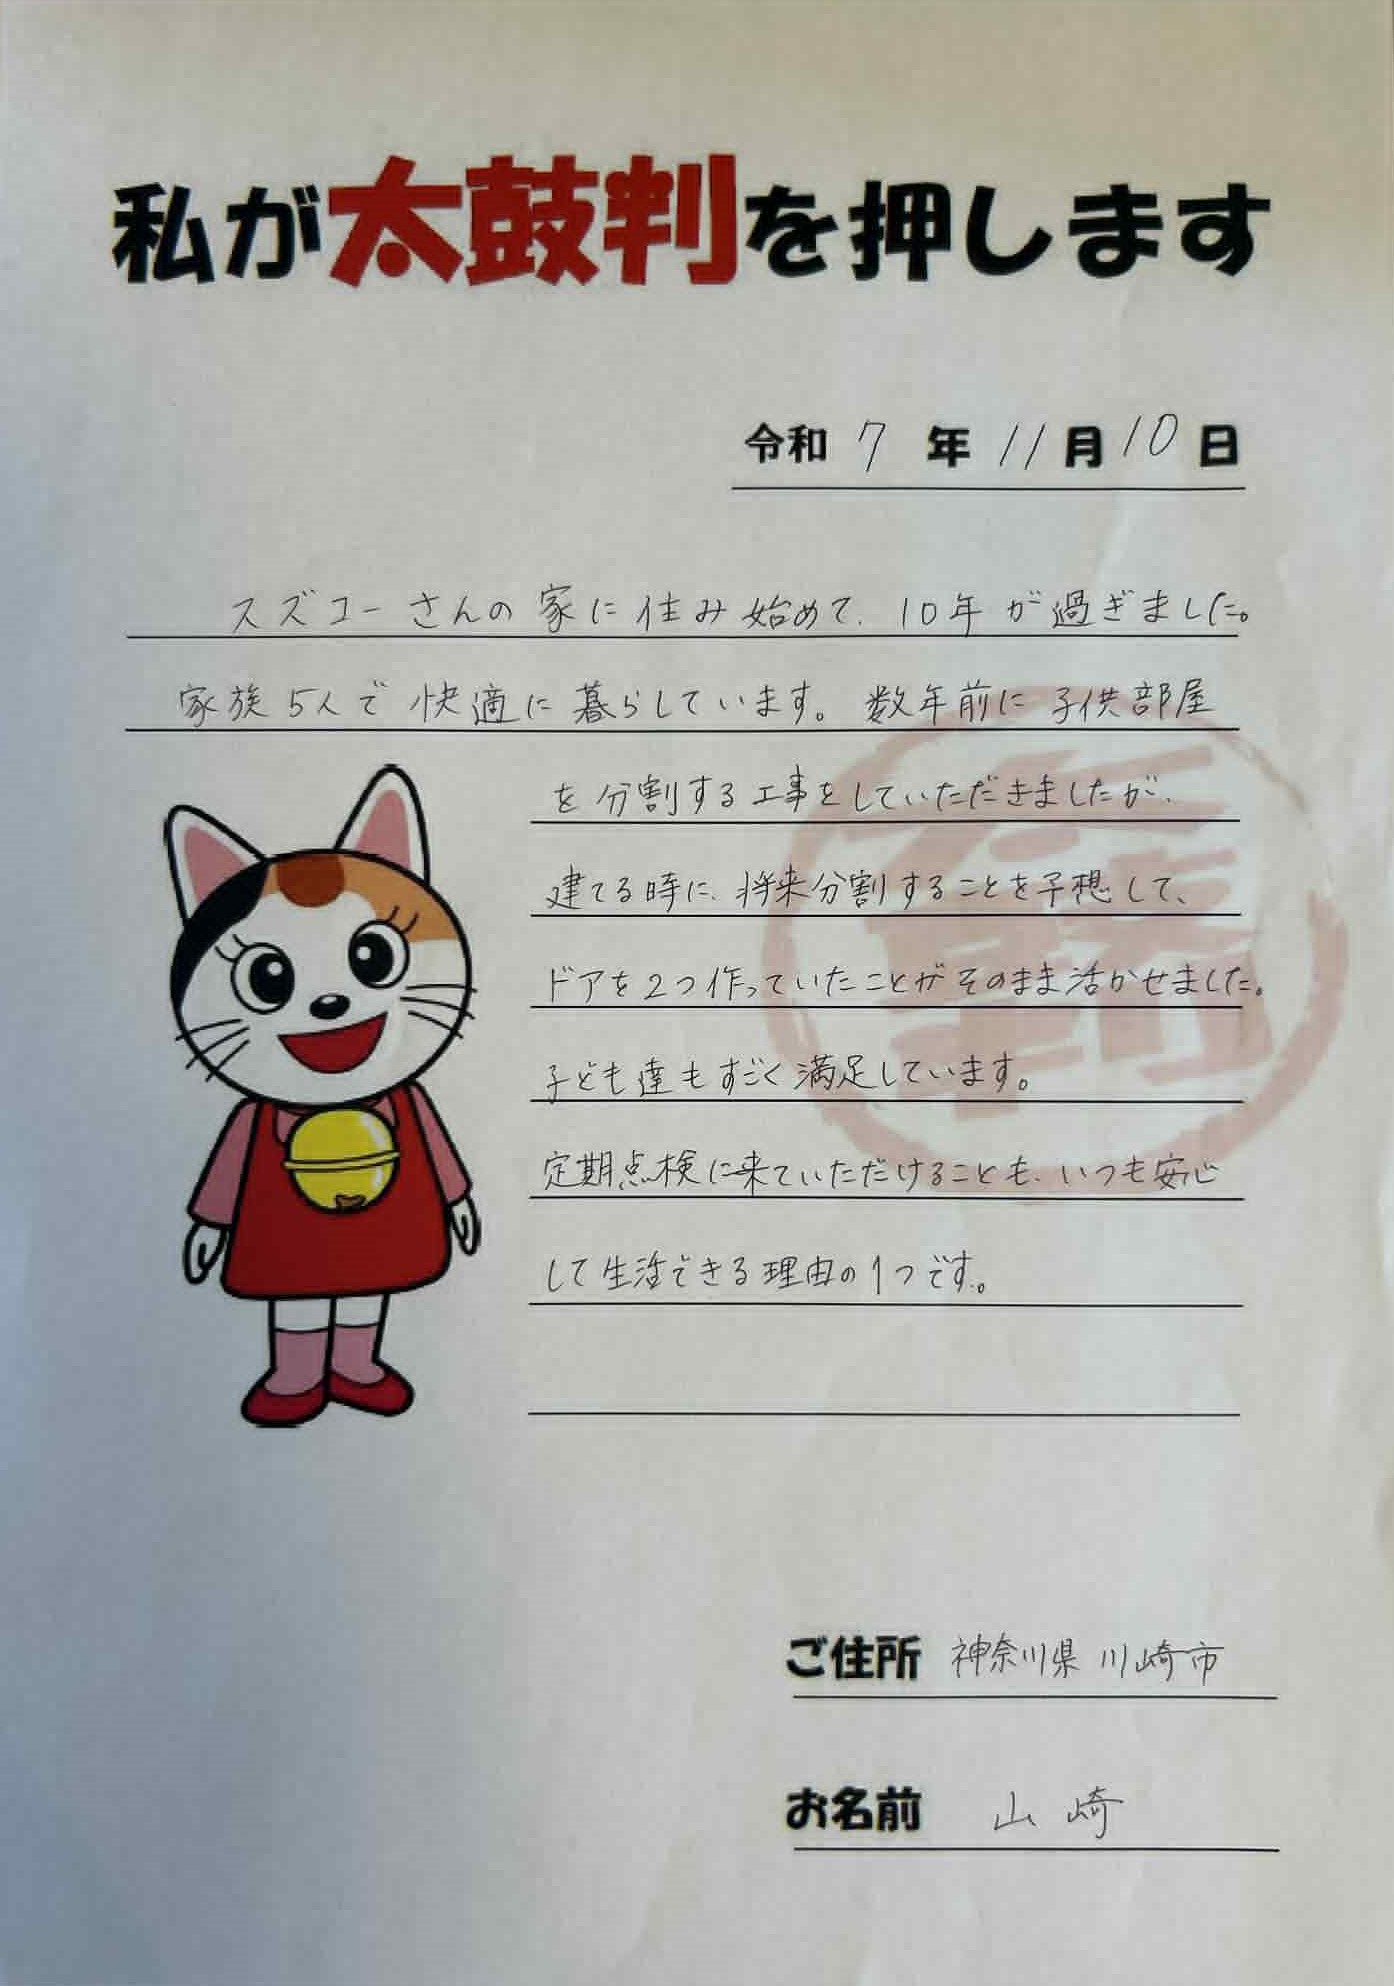 私が太鼓判を押します
令和 7 年 11 月 10 日
スズコーさんの家に住み始めて、10年が過ぎました。
家族5人で快適に暮らしています。数年前に子供部屋
を分割する工事をしていただきましたが、
建てる時に、将来分割することを予想して、
ドアを2つ作っていたことがそのまま活かせました。
子ども達もすごく満足しています。
定期点検に来ていただけることも、いつも安心
して生活できる理由の1つです。
ご住所 神奈川県 川崎市
お名前 山崎